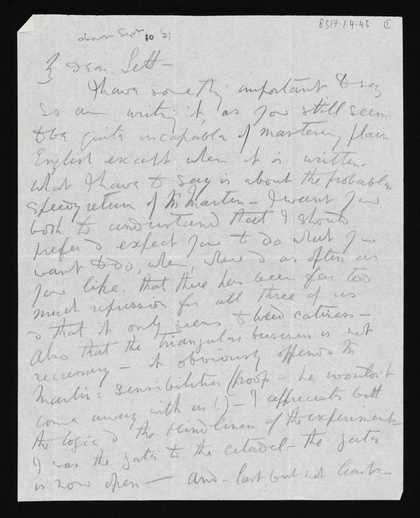 about Sept 30 21
8517.1.9.45 ①
Dear Sett -
I have something important to say
so am writing it, as you still seem
to be quite incapable of mastering plain
English except when it is written.
What I have to say is about the probable
speedy return of Mr Martin - I want you
both to understand that I should
prefer & expect you to do what you
want to do, when, where & as often as
you like, that there has been far too
much repression for all three of us
& that it only
Also that the triangular business is not
necessary - it obviously offends Mr
Martin's sensibilities (proof - he wouldn't
come away with us!) - I appreciate both
the logic & the kindliness of the experiment
I was the gates to the citadel - the gates
is now open - And - last but not least -